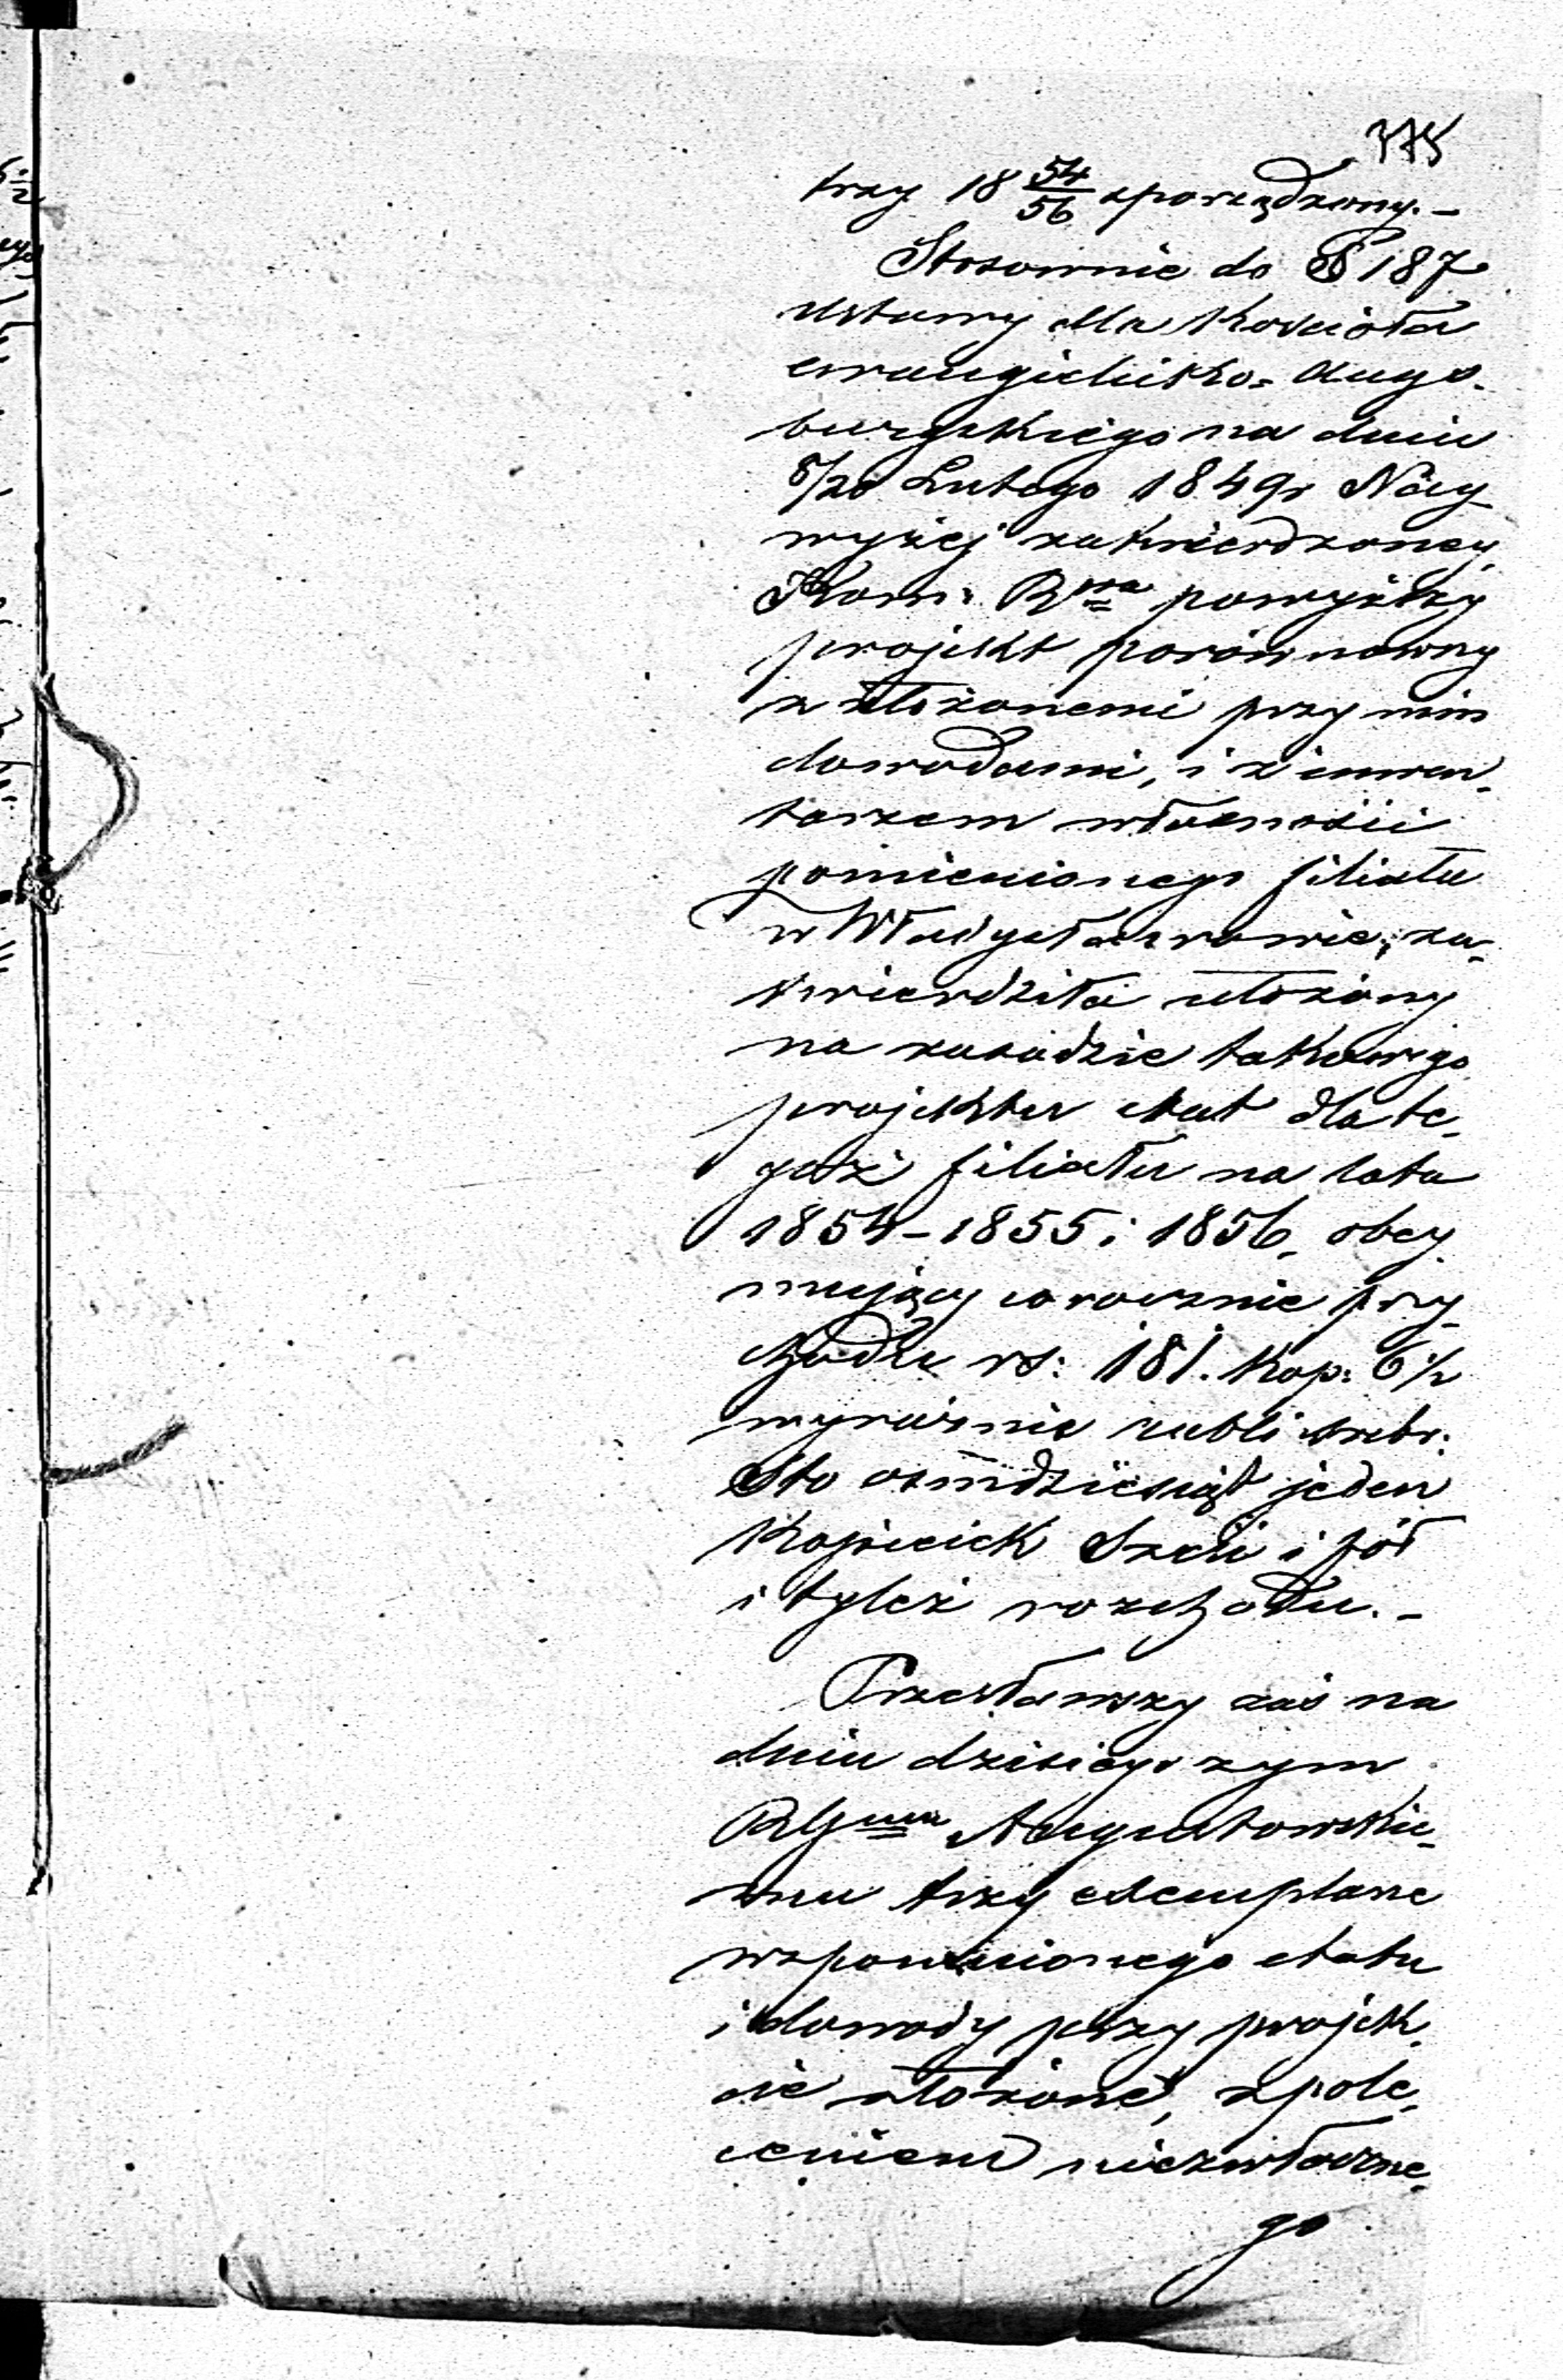 375
trzy 18 54/56 sporządzony.-
Stosownie do § 187
Ustawy dla Kościoła
ewangielicko= Augs-
burgskiego na dniu
8/20 Lutego 1849 r Nay
wyżej zatwierdzoney
Kom: Rząa powyższy
projekt porównawszy
z złożonemi przy nim
dowodami, i z inwen-
tarzem własności
pomienionego filiału
w Władysławowie, za-
twierdziła ułożony
na zasadzie takowego
projektu etat dla te-
goż filiału na lata
1854-1855 i 1856, obey
mujący corocznie przy-
chodu rs: 181. Kop: 6 1/2
wyraźnie rubli srebr:
sto ośmdziesiąt jeden
Kopieiek Sześć i pół
i tyleż rozchodu.-
Przesławszy zaś na
dniu dzisieyszym
RGmu Augustowskie-
mu trzy exemplarze
wspomnionego etatu
i dowody przy projek-
cie złożone, z pole-
ceniem niezwłoczne-
go